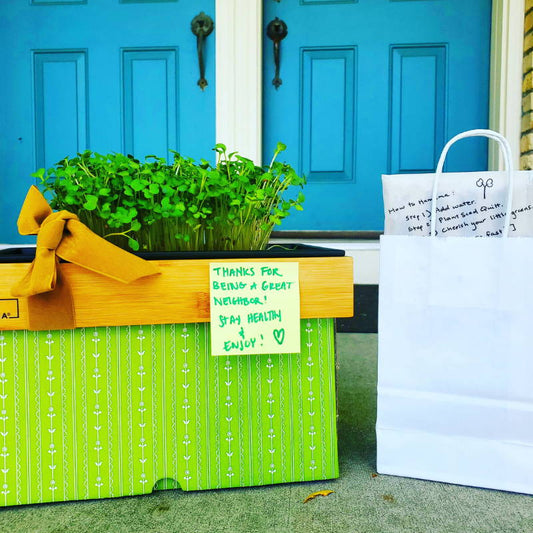 THANKS FOR
BEING A GREAT
NEIGHBOR!
STAY HEALTHY
&
ENJOY!
How to Hamama:
Step 1) Add water.
Step 2) Plant Seed Quilt.
Cherish your little greens
A